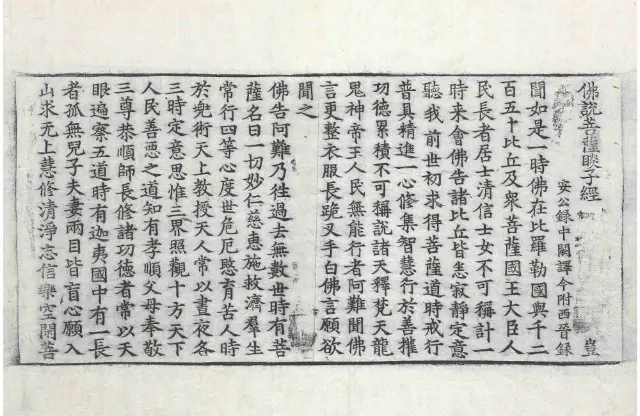 佛說菩薩睒子經 豈
安公録中闕譯今附西晉録
聞如是一時佛在比羅勒國與千二
百五十比丘及衆菩薩國王大臣人
民長者居士清信士女不可稱計一
時来會佛告諸比丘皆悉寂靜定意
聽我前世初求得菩薩道時戒行
普具精進一心修集智慧行於善權
功德累積不可稱說諸天釋梵天龍
鬼神帝王人民無能行者阿難聞佛
言更整衣服長跪叉手白佛言願欲
聞之
佛告阿難乃往過去無數世時有菩
薩名曰一切妙仁慈惠施救濟羣生
常行四等心度世危厄愍育苦人時
於兜術天上教授天人常以晝夜各
三時定意思惟三界照觀十方天下
人民善惡之道知有孝順父母奉敬
三尊恭順師長修諸功德者常以天
眼遍察五道時有迦夷國中有一長
者孤無兒子夫妻兩目皆盲心願入
山求无上慧修清淨志信樂空閑菩